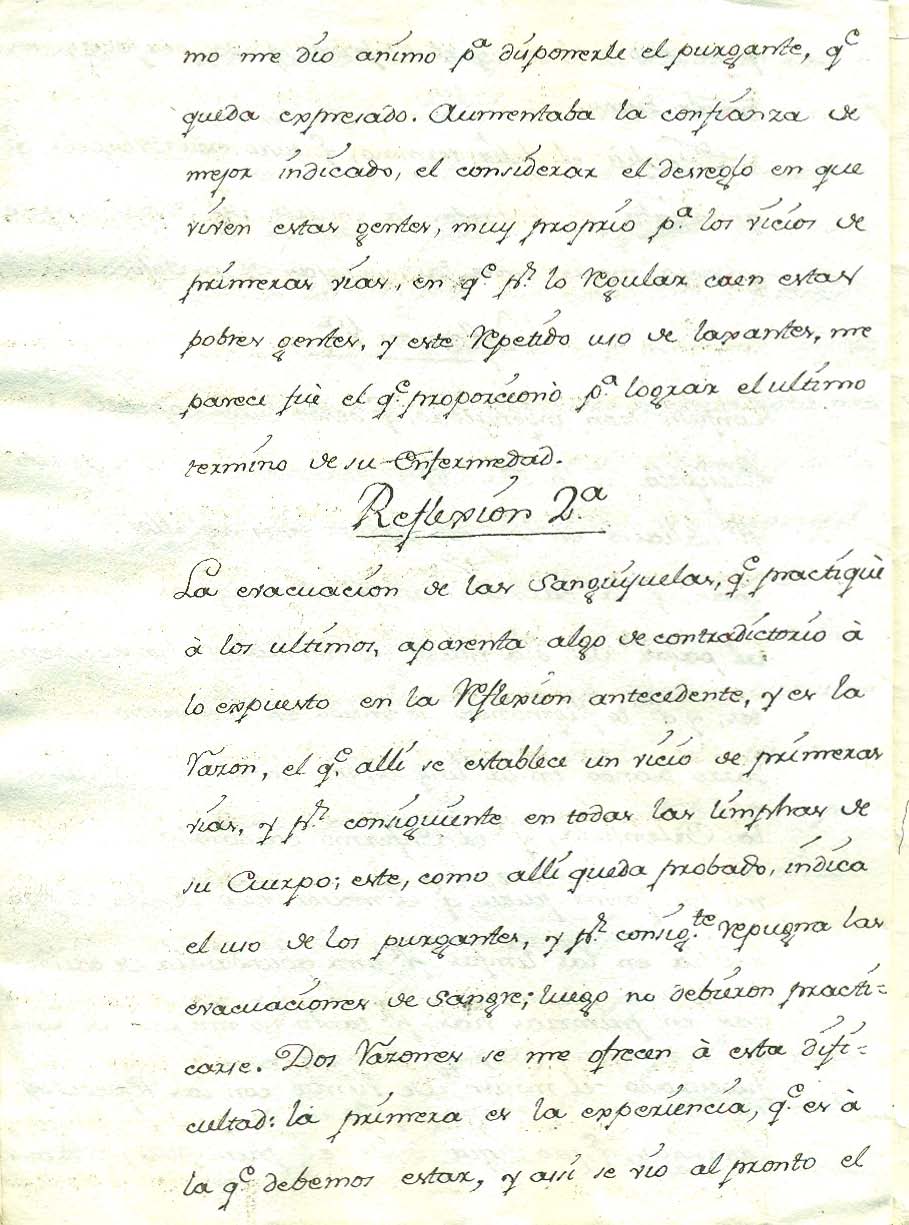 mo me dio animo pª disponerle el purgante, qᵉ
queda expresado. Aumentaba la confianza de
mejor indicado, el considerar el desreglo en que
viven estas gentes, muy proprio pª los vicios de
primeras vias, en qᵉ pʳ lo regular caen estas
pobres gentes, y este repetido uso de laxantes, me
parece fuè el qᵉ proporcionò pª lograr el ultimo
termino de su Enfermedad.
Reflexion 2ª
La evacuacion de las Sanguijuelas, qᵉ practiquè
à los ultimos, aparenta algo de contradictorio à
lo expuesto en la reflexion antecedente, y es la
razon, el qᵉ alli se establece un vicio de primeras
vias, y pʳ consiguiente en todas las limphas de
su Cuerpo; este, como alli queda probado, indica
el uso de los purgantes, y pʳ consigᵗᵉ repugna las
evacuaciones de Sangre; luego no debieron practi=
carse. Dos razones se me ofrecen à esta difi=
cultad: la primera es la experiencia, qᵉ es à
la qᵉ debemos estar, y assi se vio al pronto el